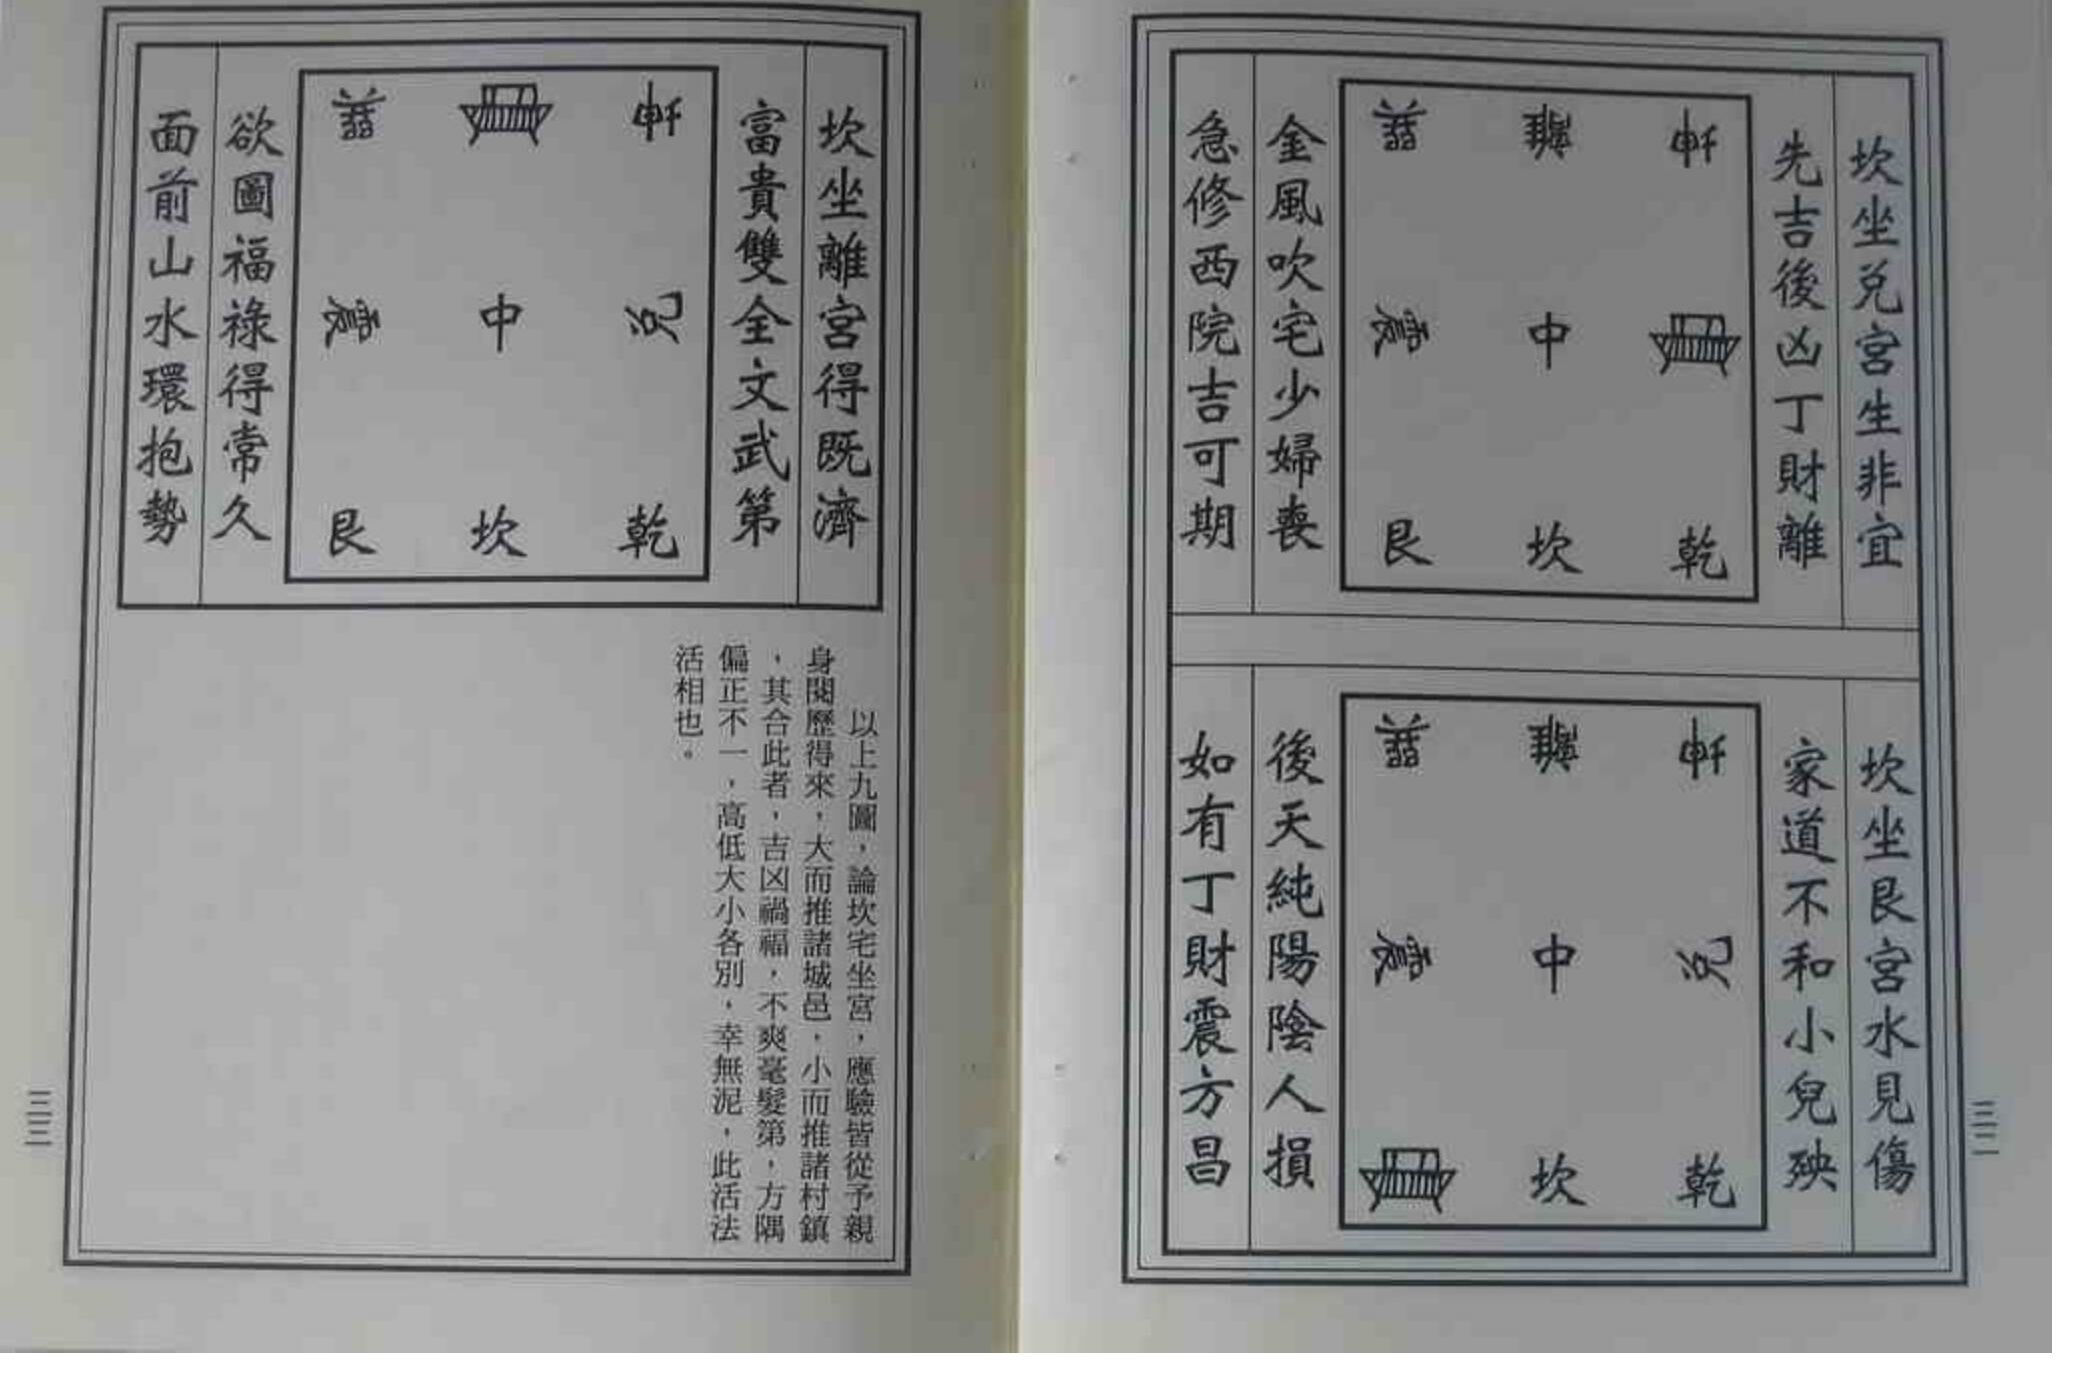 坎坐兑宮生非宜
先吉後凶丁財離
坤
離
巽
震
中
乾
坎
艮
金風吹宅少婦喪
急修西院吉可期
坎坐艮宮水見傷
家道不和小兒殃
坤
離
巽
兑
中
震
乾
坎
後天純陽陰人損
如有丁財震方昌
三二
坎坐離宮得既濟
富貴雙全文武第
坤
巽
兑
中
震
乾
坎
艮
欲圖福祿得常久
面前山水環抱勢
以上九圖，論坎宅坐宮，應驗皆從予親
身閱歷得來，大而推諸城邑，小而推諸村鎮
，其合此者，吉凶禍福，不爽毫髮第，方隅
偏正不一，高低大小各別，幸無泥，此活法
活相也。
三三